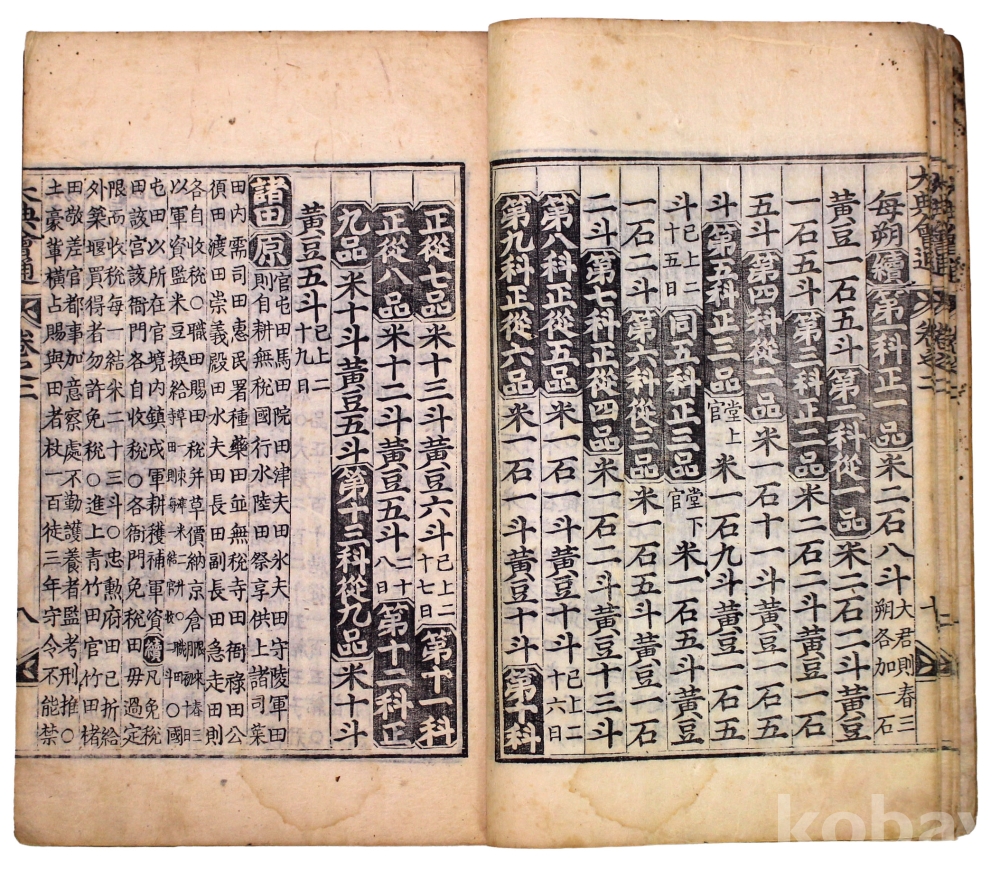 每朔續第一科正一品米二石八斗大君則春三朔各加一石
黃豆一石五斗第二科從一品米二石二斗黃豆
一石五斗第三科正二品米二石二斗黃豆一石
五斗第四科從二品米一石十一斗黃豆一石五
斗第五科正三品堂上官米一石九斗黃豆一石五
斗已上二十五日同五科正三品堂下官米一石五斗黃豆
一石二斗第六科從三品米一石五斗黃豆一石
二斗第七科正從四品米一石二斗黃豆十三斗
第八科正從五品米一石一斗黃豆十斗已上二十六日
第九科正從六品米一石一斗黃豆十斗第十科
大典會通 卷之二
正從七品米十三斗黃豆六斗已上二十七日第十一科
正從八品米十二斗黃豆五斗二十八日第十二科正
九品米十斗黃豆五斗第十三科從九品米十斗
黃豆五斗已上二十九日
諸田原官屯田馬田院田津夫田氷夫田守陵軍田
則自耕無稅國行水陸田祭享供上諸司菜
田內需司田惠民署種藥田並無稅寺田衙祿田公
須田渡田崇義殿田水夫田長田副長田急走田則
各自收稅○職田賜田稅并草價納京倉
以軍資監米豆換給○國
屯田以所在官境內鎭戍軍耕穫補軍資續凡免稅
田該宮該衙門各自收稅○各衙門免稅田毋過定
限而收稅每一結米二十三斗○忠勳府田已折給
外築堰買得者勿許免稅○進上靑竹田官竹田楮
田敬差官都事加意察處不勤護養者監考刑推○
土豪輩橫占賜與田者杖一百徒三年守令不能禁
大典會通 卷之二 八